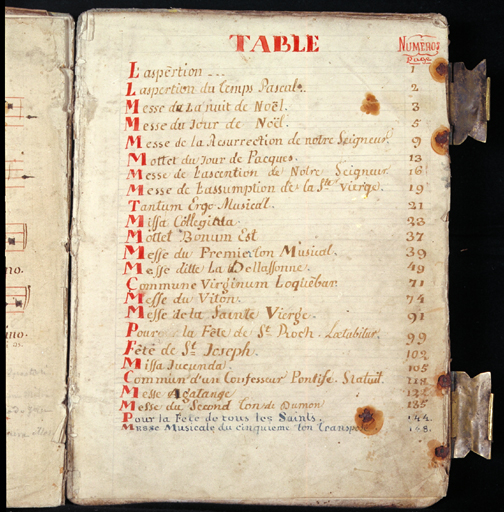 TABLE
NUMEROS
Page
Laspertion --- 1
Laspertion du Temps Pascal. 2
Messe du La nuit de Noël. 3
Messe du Jour de Noël. 5
Messe de la Resurrection de notre Seigneur. 9
Mottet du Jour de Pacques. 13
Messe de Lascention de Notre Seigneur. 16
Messe de Lassumption de la Ste Vierge. 19
Tantum Ergo Musical. 21
Missa Collegiata 33
Mottet Bonum Est 37
Messe du Premier ton Musical. 39
Messe ditte La Dellassonne. 49
Commune Virginum Loquebar. 71
Messe du Viton. 74
Messe de la Sainte Vierge. 91
Pour la Fête de St Roch. Lætabitur. 99
Fête de St Joseph. 102
Missa Jucunda. 105
Commun d'un Confesseur Pontife. Statuit.
Messe Agatange
Messe du Second ton de Dumon 135
Pour la Fête de tous les Saints. 144.
Messe Musicale du cinquieme ton Transposé 148.
no.
ino.